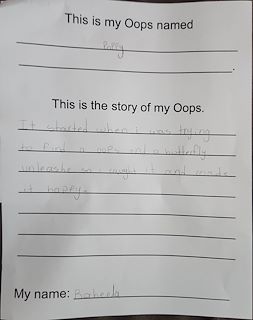 This is my Oops named
Poppy
This is the story of my Oops.
It started when i was trying
to find a oops and a butterfly
unleashe so i caught it and made
it happy.
My name: Raheela